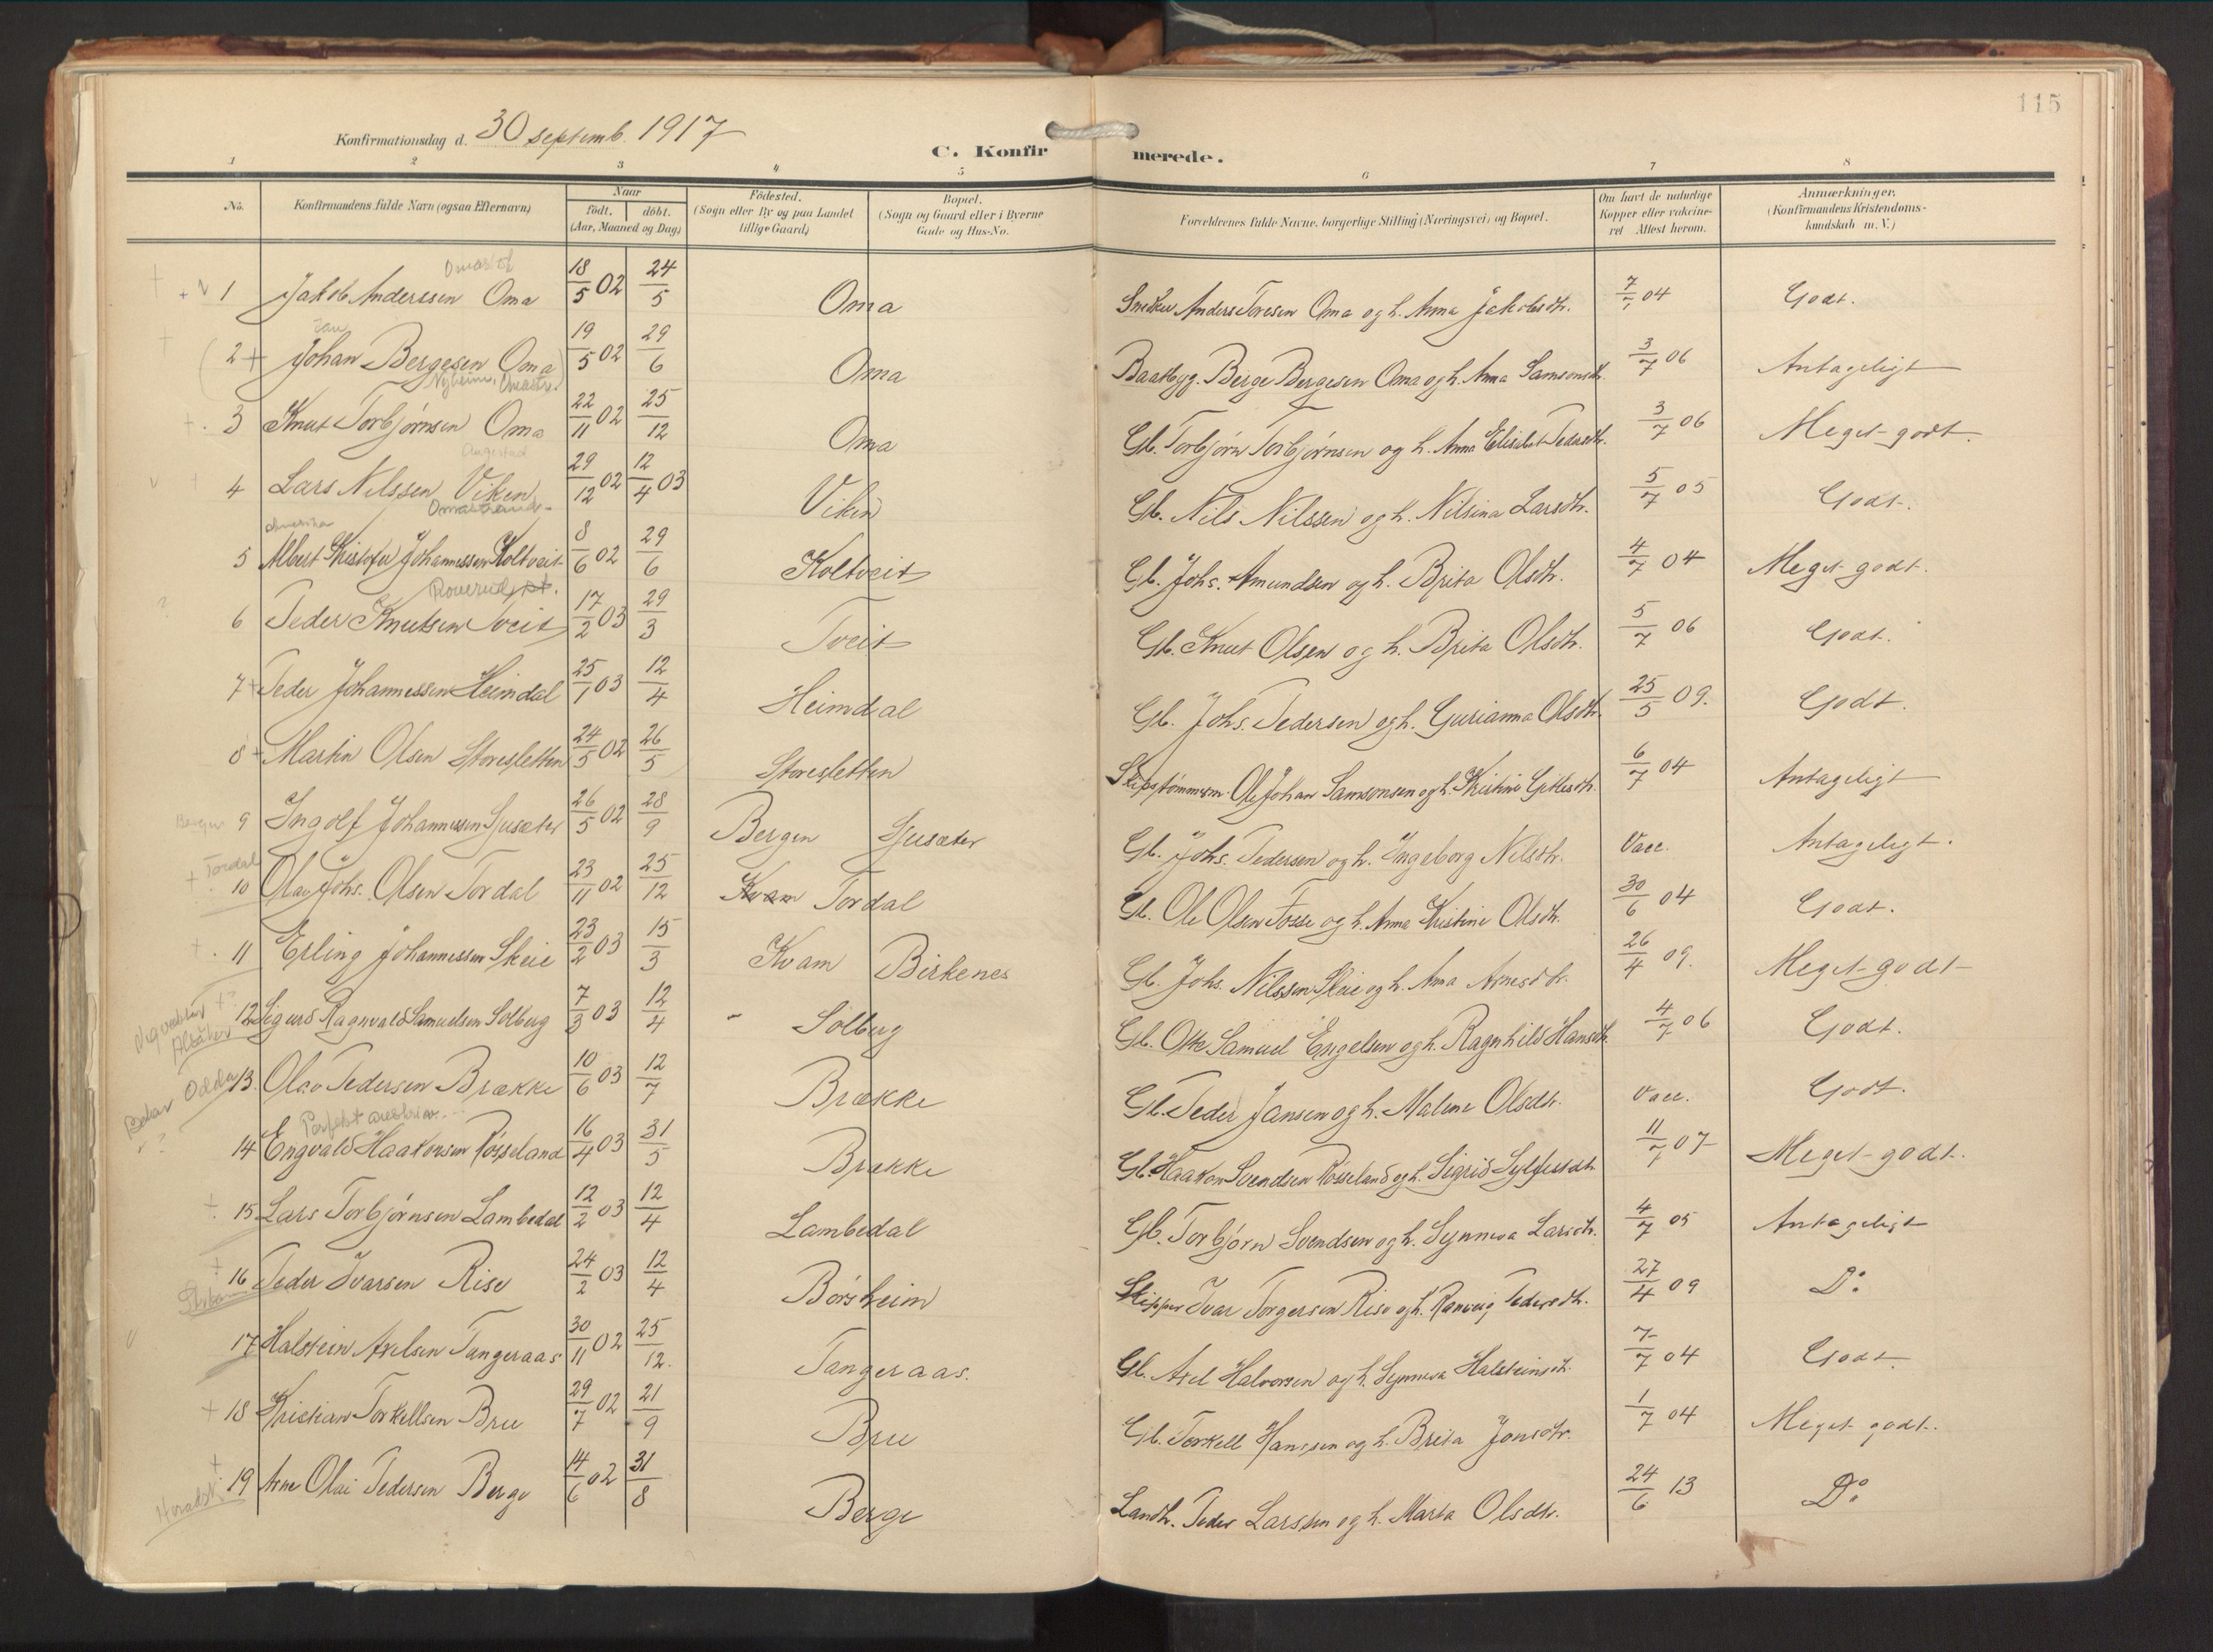 115
Konfirmationsdag d. 30 septemb. 1917
C. Konfirmerede.
1 2 3 4 5 6 7 8
No. Konfirmandens fulde Navn (ogsaa Efternavn) Naar født. døbt. (Aar, Maaned og Dag) Fødested. (Sogn eller By og paa Landet tillige Gaard) Bopæl. (Sogn og Gaard eller i Byerne Gade og Hus-No. Forældrenes fulde Navne, borgerlige Stilling (Næringsvei) og Bopæl. Om havt de naturlige Kopper eller vakcineret Attest herom. Anmærkninger. (Konfirmandens Kristendomskundskab m. V.)
1 Jakob Anderssen Oma 18/5 02 24/5 Oma Snedker Anders Toresen Oma og h. Anna Jakobsdtr. 7/7 04 Godt.
2 + Johan Bergesen Oma 19/5 02 29/6 Oma Baatbyg. Berge Bergesen Oma og h. Anna Samsonsdtr. 3/7 06 Antageligt
3 Knut Torbjørnsen Oma 22/11 02 25/12 Oma Gb. Torbjørn Torbjørnsen og h. Anna Elisabet Pedersdtr. 3/7 06 Meget godt.
4 Lars Nilssen Viken 29/12 02 12/4 03 Viken Gb. Nils Nilssen og h. Nilsina Larsdtr. 5/7 05 Godt.
Amerika
5 Albert Kristofer Johannessen Koltveit 8/6 02 29/6 Koltveit Gb. Johs. Amundsen og h. Brita Olsdtr. 4/7 04 Meget godt.
6 Peder Knutsen Tveit 17/2 03 29/3 Tveit Gb. Knut Olsen og h. Brita Olsdtr. 5/7 06 Godt.
7 + Peder Johannessen Heimdal 25/1 03 12/4 Heimdal Gb. Johs. Pedersen og h. Gurianna Olsdtr. 25/5 09. Godt.
8 + Martin Olsen Storesletten 24/5 02 26/5 Storesletten Skipstømmerm. Ole Johan Samsonsen og h. Kristine Gitlesdtr. 6/7 04 Antageligt
Bergen 9 Ingolf Johannessen Ljusæter 26/5 02 28/9 Bergen Ljusæter Gb. Johs. Pedersen og h. Ingeborg Nilsdtr. Vacc. Antageligt.
+ Tordal
10 Olav Johs. Olsen Tordal 23/11 02 25/12 Kvam Tordal Gb. Ole Olsen Fosse og h. Anna Kristine Olsdtr. 30/6 04 Godt.
11 Erling Johannessen Skeie 23/2 03 15/3 Kvam Birkenes Gb. Johs. Nilssen Skeie og h. Anna Arnesdtr. 26/4 09. Meget godt
12 Sigurd Ragnvald Samuelsen Solberg 7/3 03 12/4 " Solberg Gb. Otte Samuel Engelsen og h. Ragnhild Hansdtr. 4/7 06 Godt.
Odda 13. Olav Pedersen Brække 10/6 03 12/7 Brække Gb. Peder Jansen og h. Malene Olsdtr. Vacc. Godt.
14 Engvald Haakonsen Røsseland 16/4 03 31/5 Brække Gb. Haakon Svendsen Røsseland og h. Sigrid Sylfestdtr. 11/7 07 Meget godt.
15 Lars Torbjørnsen Lambedal 12/2 03 12/4 Lambedal Gb. Torbjørn Svendsen og h. Synneva Larsdtr. 4/7 05 Antageligt
16 Peder Ivarsen Rise 24/2 03 12/4 Børsheim Skipper Ivar Torgersen Rise og h. Ranveig Pedersdtr. 27/4 09 Do
17 Halstein Axelsen Tangeraas 30/11 02 25/12. Tangeraas. Gb. Axel Halvorsen og h. Synneva Halsteinsdtr. 7/7 04 Godt.
+ 18 Kristian Torkellsen Bru 29/7 02 21/9 Bru Gb. Torkell Hanssen og h. Brita Jonsdtr. 1/7 04 Meget godt.
19 Arne Olai Pedersen Berge 14/6 02 31/8 Berge Landh. Peder Larssen og h. Marta Olsdtr. 24/6 13 Do